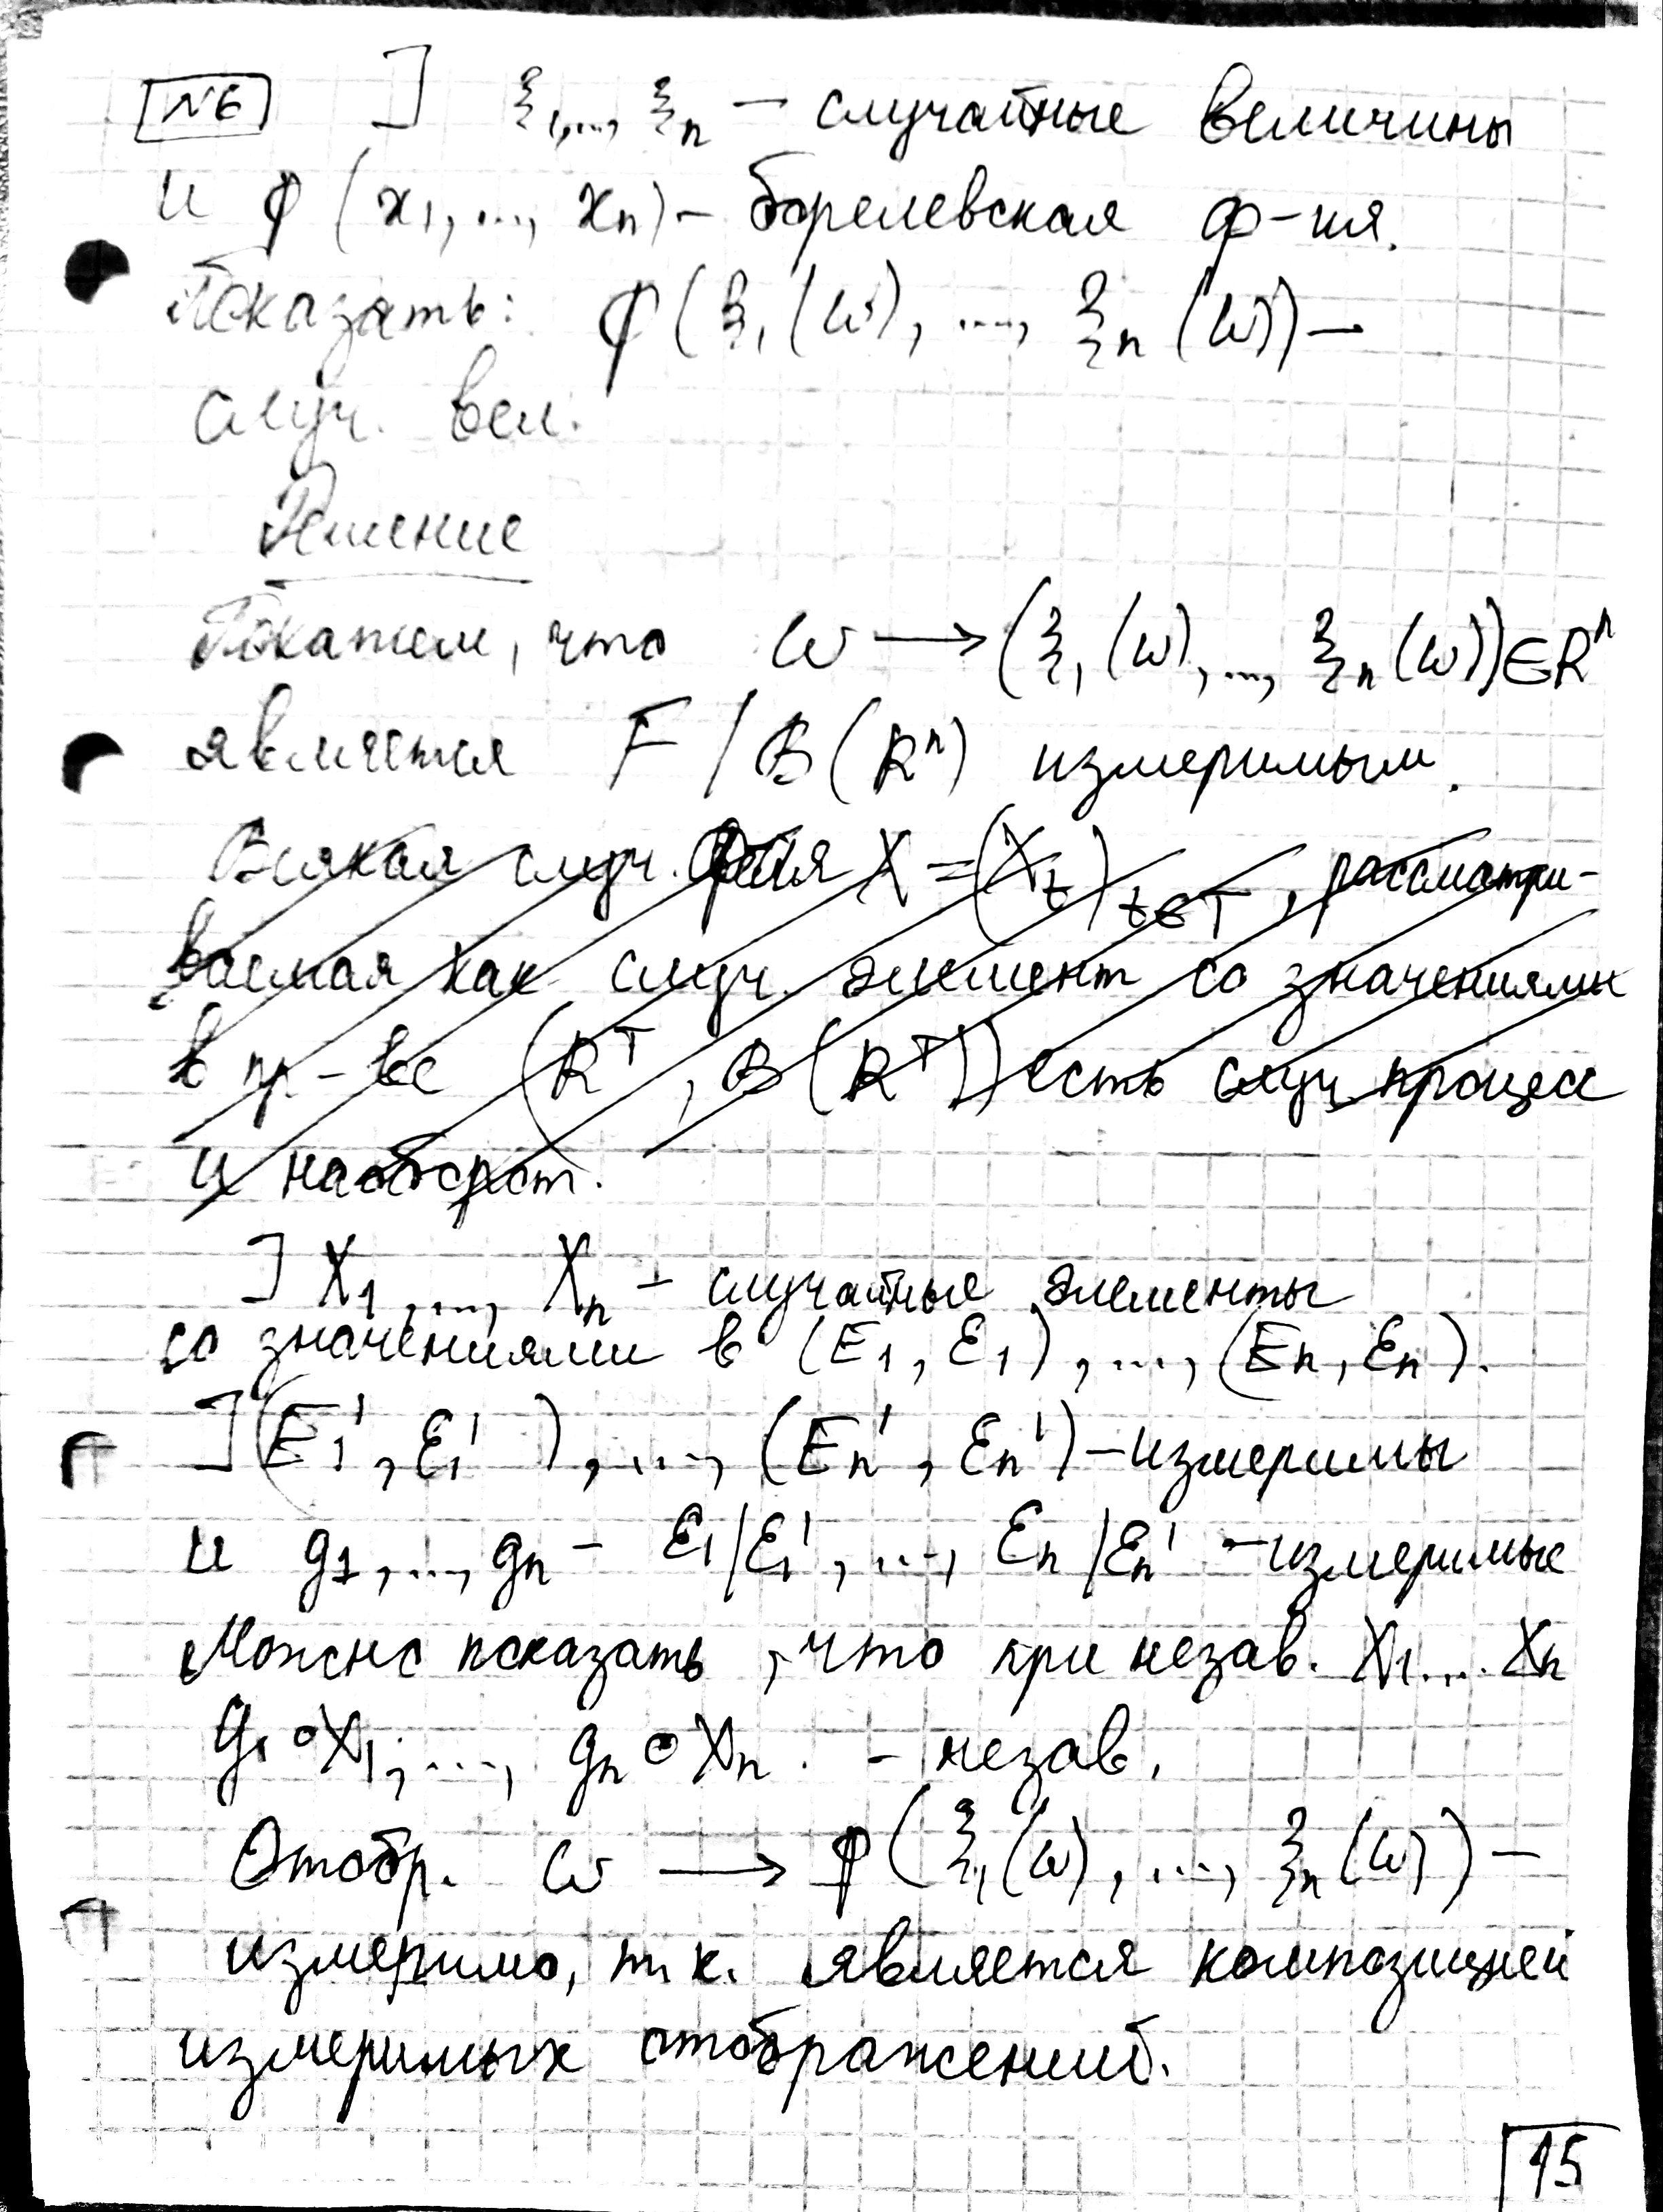 №6 ] ξ₁,..., ξₙ – случайные величины
и φ(x₁,..., xₙ) – борелевская ф-ия.
Показать: φ(ξ₁(ω), ..., ξₙ(ω)) –
случ. вел.
Решение
Покажем, что ω → (ξ₁(ω), ..., ξₙ(ω)) ∈ Rⁿ
является F / B(Rⁿ) измеримым.
Всякая случ. ф-ия X = (Xₜ)ₜ∈T, рассматри-
ваемая как случ. элемент со значениями
в пр-ве (Rᵀ, B(Rᵀ)) есть случ. процесс
и наоборот.
] X₁, ..., Xₙ – случайные элементы
со значениями в (E₁, ℰ₁), ..., (Eₙ, ℰₙ).
] (E₁', ℰ₁'), ..., (Eₙ', ℰₙ') – измеримы
и g₁, ..., gₙ – ℰ₁/ℰ₁', ..., ℰₙ/ℰₙ' – измеримые
Можно показать, что при незав. X₁ ... Xₙ
g₁∘X₁, ..., gₙ∘Xₙ. – незав.
Отобр. ω → φ(ξ₁(ω), ..., ξₙ(ω)) –
измеримо, т.к. является композицией
измеримых отображений.
15